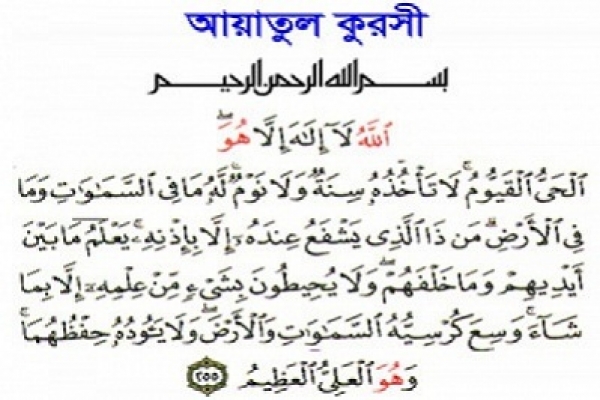 আয়াতুল কুরসী
بسم الله الرحمن الرحيم
ٱللَّهُ لَآ إِلَٰهَ إِلَّا هُوَ
ٱلْحَىُّ ٱلْقَيُّومُ ۚ لَا تَأْخُذُهُۥ سِنَةٌ وَلَا نَوْمٌ ۚ لَّهُۥ مَا فِى ٱلسَّمَٰوَٰتِ وَمَا
فِى ٱلْأَرْضِ ۗ مَن ذَا ٱلَّذِى يَشْفَعُ عِندَهُۥٓ إِلَّا بِإِذْنِهِۦ ۚ يَعْلَمُ مَا بَيْنَ
أَيْدِيهِمْ وَمَا خَلْفَهُمْ ۖ وَلَا يُحِيطُونَ بِشَىْءٍ مِّنْ عِلْمِهِۦٓ إِلَّا بِمَا
شَآءَ ۚ وَسِعَ كُرْسِيُّهُ ٱلسَّمَٰوَٰتِ وَٱلْأَرْضَ ۖ وَلَا يَـُٔودُهُۥ حِفْظُهُمَا ۚ
وَهُوَ ٱلْعَلِىُّ ٱلْعَظِيمُ ٢٥٥